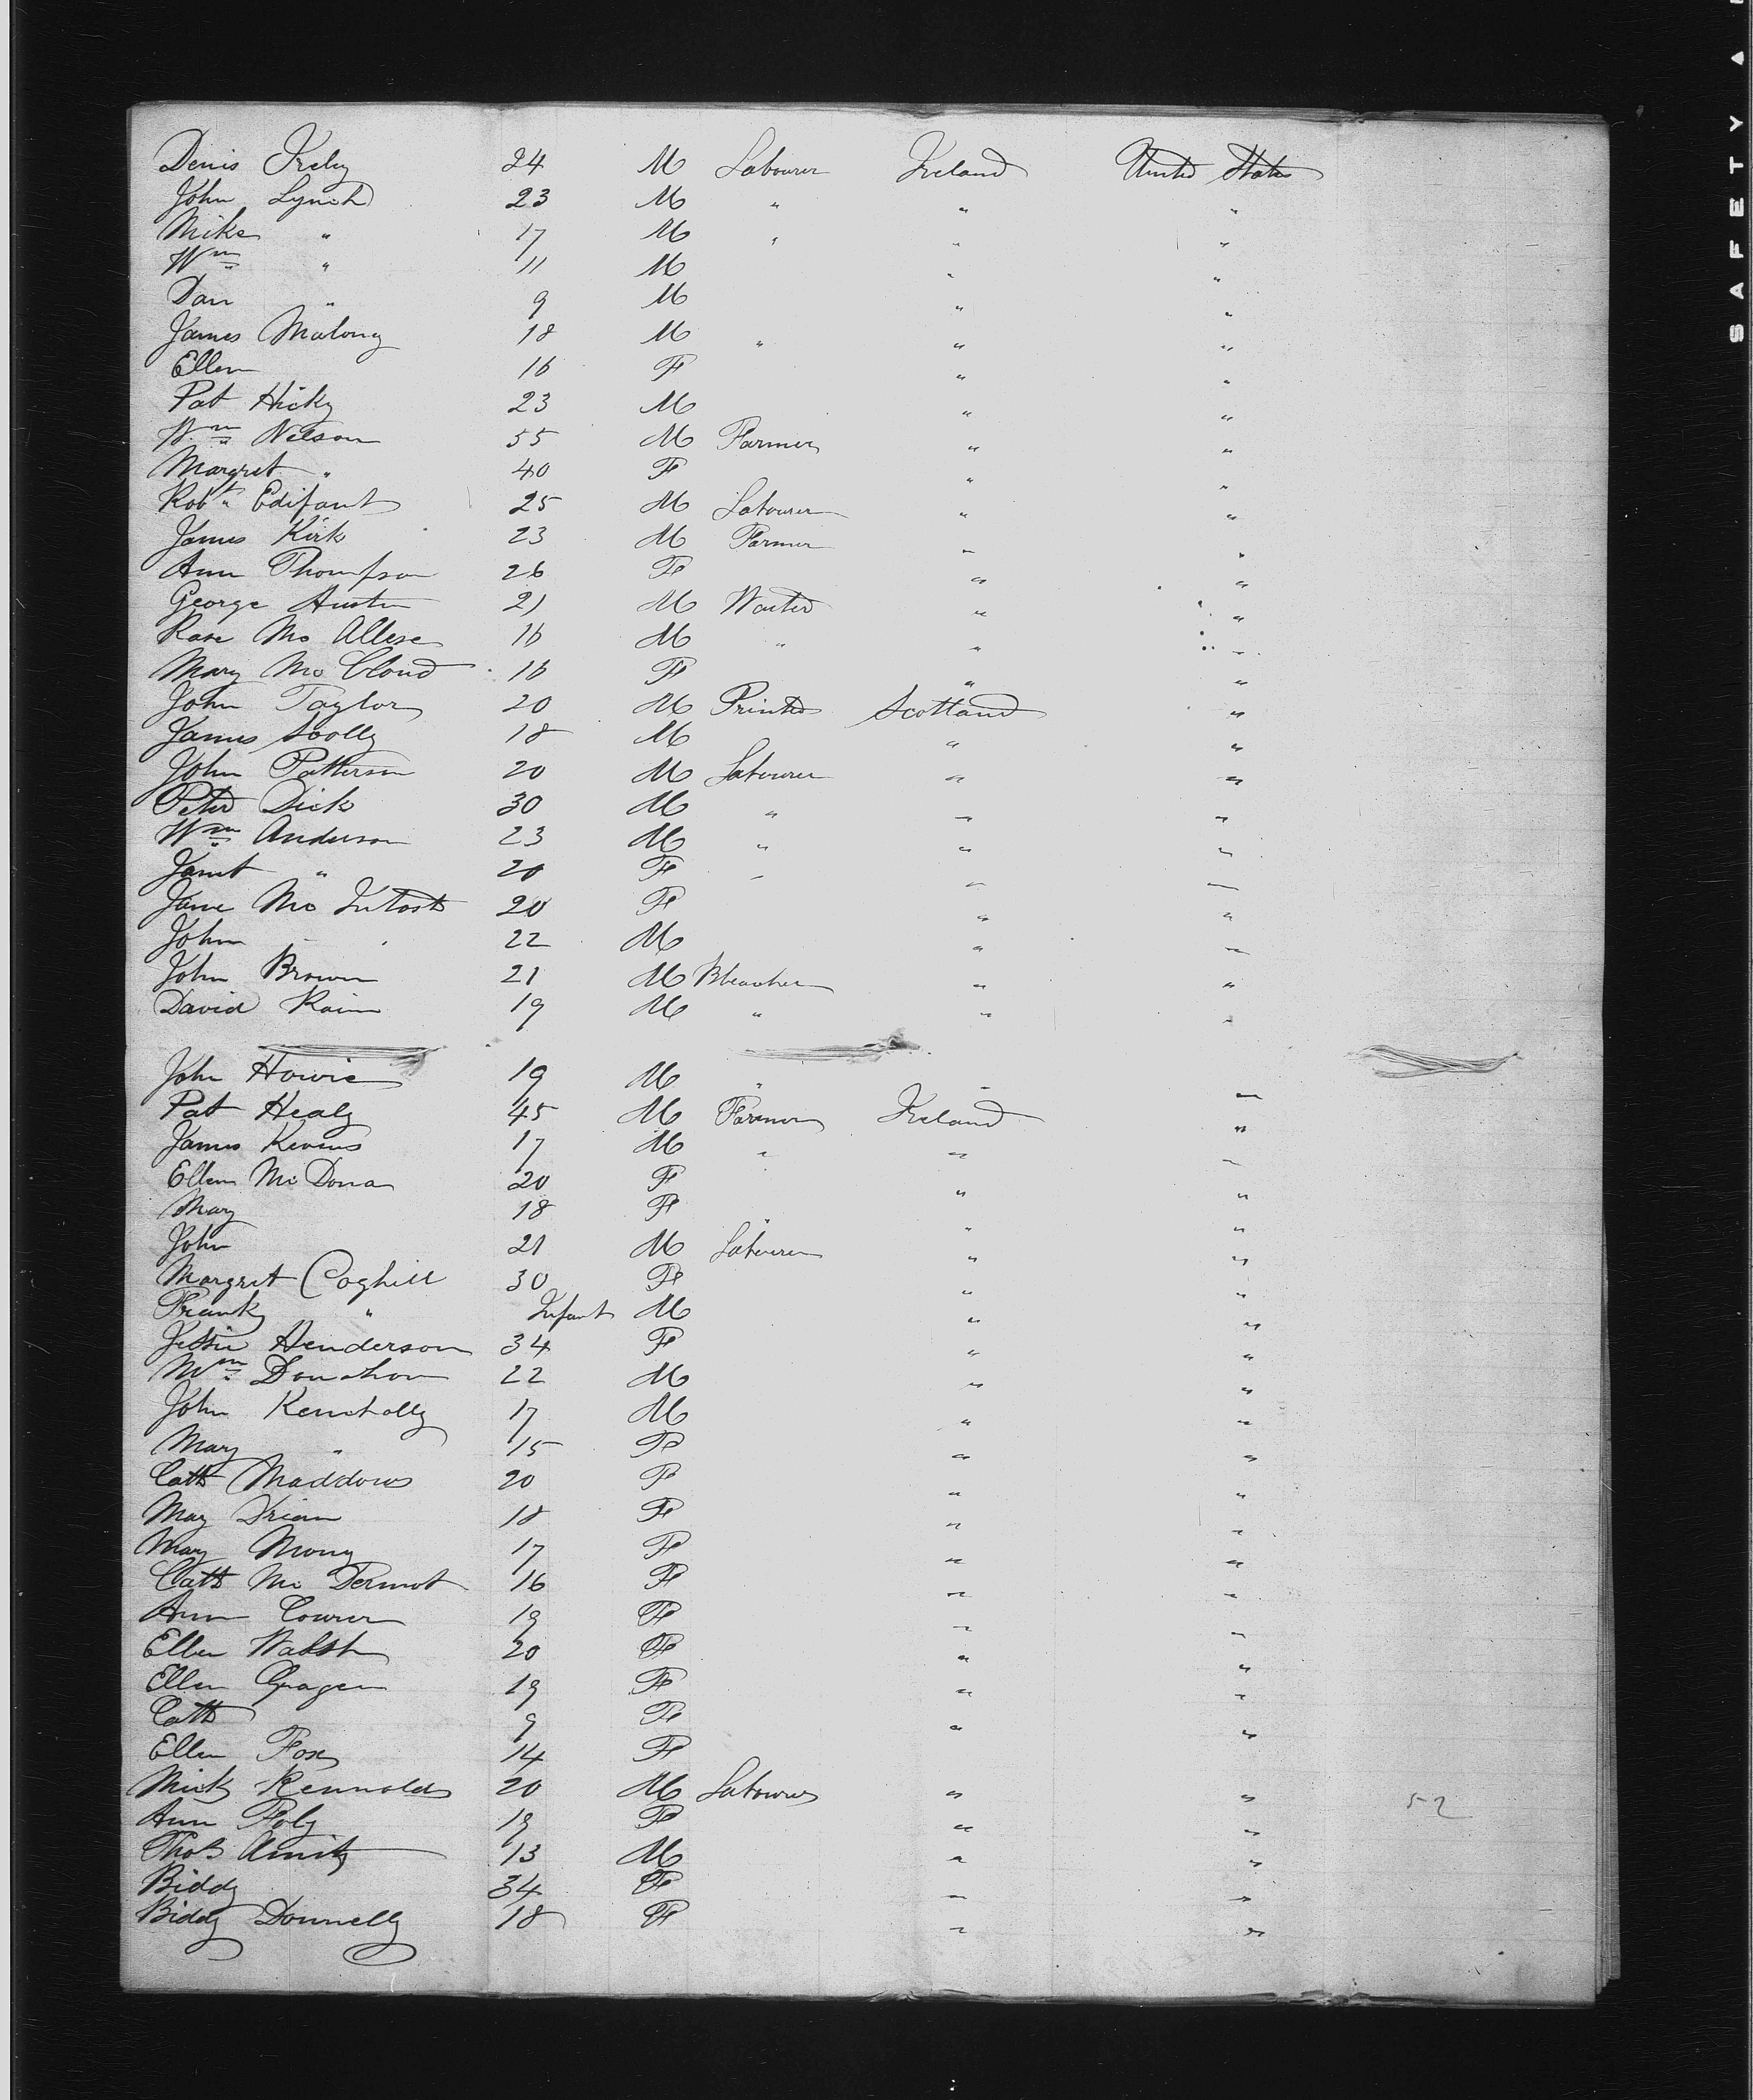 SAFETY
Denis 24 M Labourer Ireland United States
John Lynch 23 M " " "
Mike " 17 M " " "
Wm " 11 M " "
Dan " 9 M " "
James Malony 18 M " " "
Ellen 16 F " "
Pat Hicky 23 M " "
Wm Nelson 55 M Farmer " "
Margret " 40 F " "
Robt Edifant 25 M Labourer " "
James Kirk 23 M Farmer " "
Ann Thompson 26 F " "
George Austin 21 M Waiter " "
Rose Mc 16 M " " "
Mary Mc Cloud 16 F " "
John Taylor 20 M Printer Scotland "
James Scolly 18 M " "
John Patterson 20 M Labourer " "
Peter Dick 30 M " " "
Wm Anderson 23 M " " "
Janet " 20 F " " "
Jane Mc Intosh 20 F " "
John " 22 M " "
John Brown 21 M Bleacher " "
David Rain 19 M " " "
John Howie 19 M " " "
Pat Healy 45 M Farmer Ireland "
James Kevins 17 M " " "
Ellen Mc Dona 20 F " "
Mary 18 F " " "
John 21 M Labourer " "
Margret Coghill 30 F " "
Frank " Infant M " "
Jessie Henderson 34 F " "
Wm Donahow 22 M " "
John Kennhally 17 M " "
Mary " 15 F " "
Cath Maddows 20 F " "
May Brian 18 F " "
Mary Mony 17 F " "
Cath Mc Dermot 16 F " "
Ann 19 F " "
Ellen Walsh 20 F " "
Ellen Gragen 19 F " "
Cath 9 F " "
Ellen Fox 14 F
Mick Kennolds 20 M Labourer " " 52
Ann Foly 19 F " "
Thos 13 M " "
Biddy 34 F " "
Biddy Donnelly 18 F " "